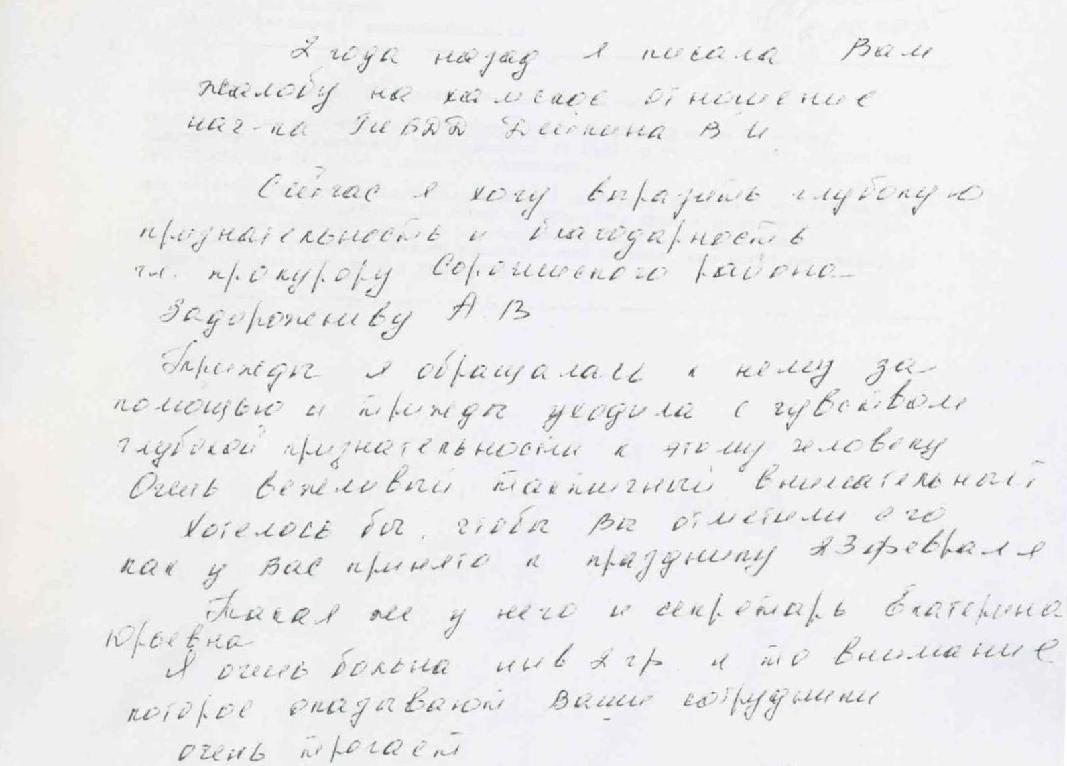 2 года назад я писала Вам
жалобу на хамское отношение
нач-ка ГИБДД Дейкина В И
Сейчас я хочу выразить глубокую
признательность и благодарность
гл. прокурору Сорочинского района
Задорожниву А В
Трижды я обращалась к нему за
помощью и трижды уходила с чувством
глубокой признательности к этому человеку
Очень вежливый тактичный внимательный
Хотелось бы, чтобы Вы отметили его
как у Вас принято к празднику 23 февраля
Такая же у него и секретарь Екатерина
Юрьевна
Я очень больна инв 2 гр. и то внимание
которое оказывают Ваши сотрудники
очень трогает